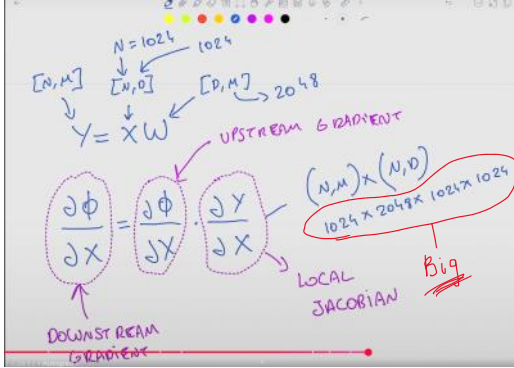 N=1024
1024
[N,M] [N,D] [D,M] → 2048
Y = X W
UPSTREAM GRADIENT
∂ϕ/∂X = ∂ϕ/∂X · ∂Y/∂X
(N,M) x (N,D)
1024 x 2048 x 1024 x 1024
Big
LOCAL
JACOBIAN
DOWNSTREAM
GRADIENT